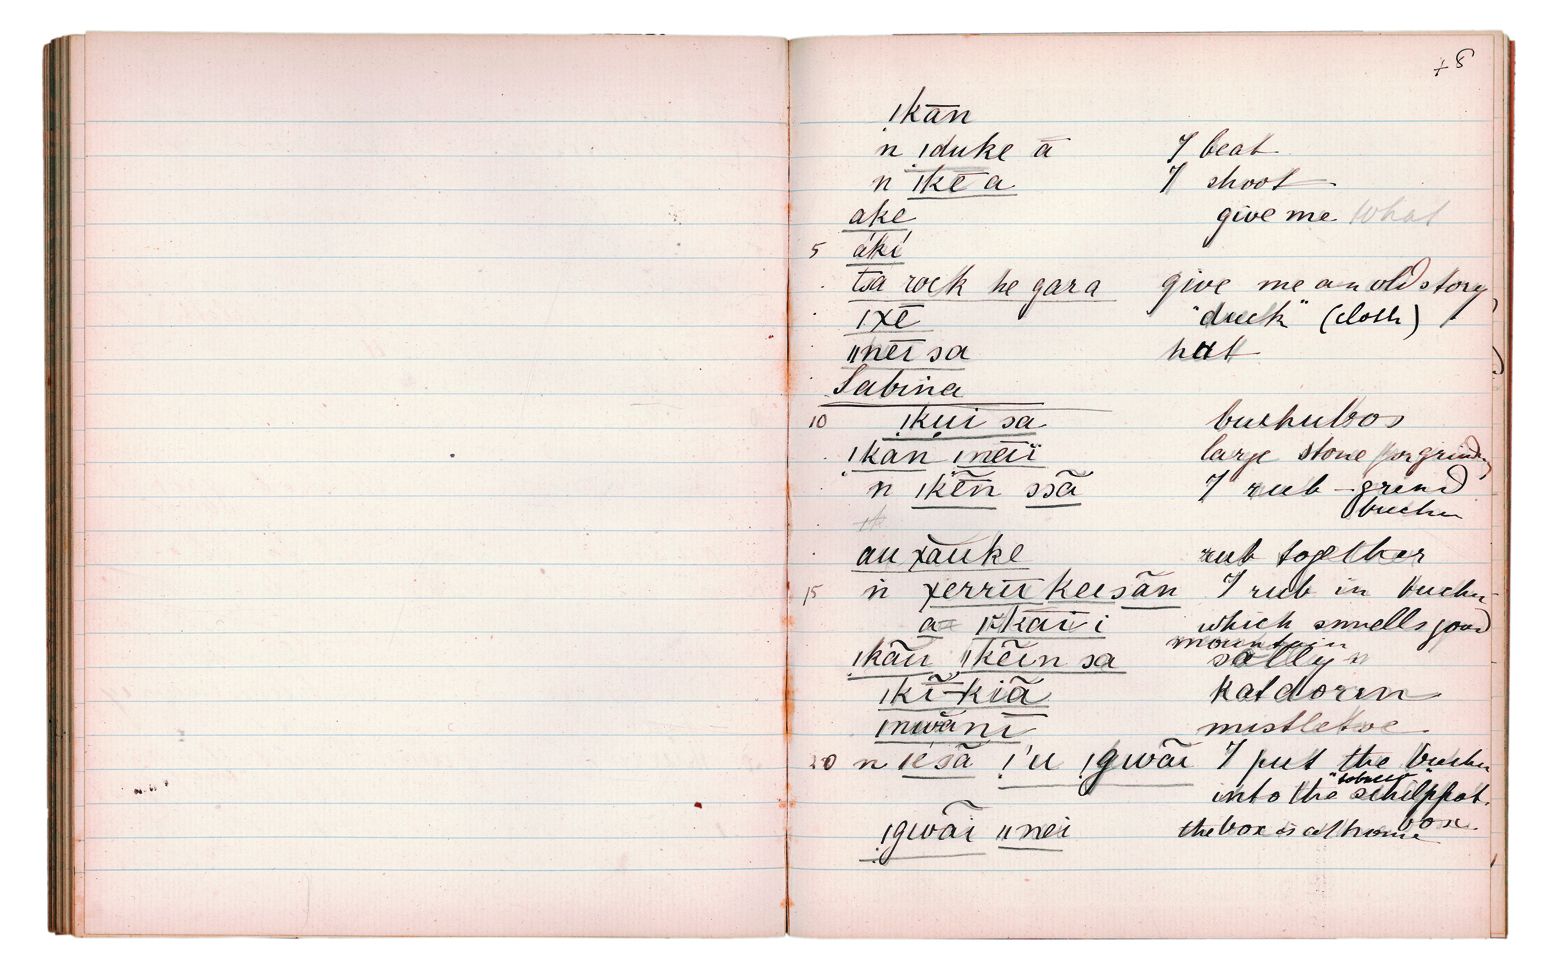 +8
ǀkān
n ǀduke ā I beat
n ǀkē a I shoot
ake give me what
5 ákí
tsa rock he gara give me an old story
ǀxē "duck" (cloth)
ǁneī sa hat
Sabina
10 ǃkui sa buchubos
ǀkān ǀneiī large stone for grinding
n ǀkēn ssā I rub - grind
buchu
au xāuke rub together
15 n xerriī keisān I rub in buchu
a ǀkāī i which smells good
mountain
ǀkāu ǀkēin sa sally
ǀkī-kiā katdorin
ǀnwānī mistletoe
20 n ǀésā ǀ'u ǃgwāi I put the buchu
"tobacco"
into the schilppat.
box.
ǃgwāi ǁnei the box is at home